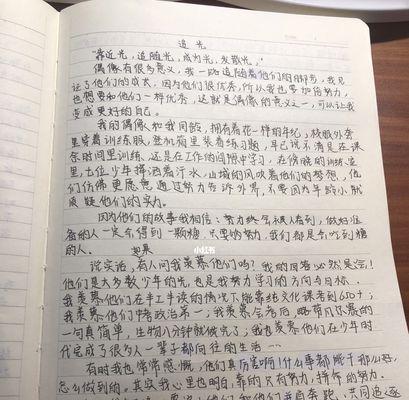 追光
"靠近光,追随光,成为光,发散光。"
偶像有很多意义,我一路追随着他们的脚步,我见
证了他们的成长,因为他们很优秀,所以我也要加倍努力,
也想要和他们一样优秀,这就是偶像的意义之一,可以让我
变成更好的自己。
我的偶像和我同龄,拥有着花一样的年纪,校服外套
里穿着训练服,登机箱里装着练习题,早已说不清是在课
余时间里训练,还是在工作的间隙中学习,在傍晚的训练道
里,七位少年挥洒着汗水,山城的风吹着他们的梦想,他
们仿佛更愿意通过努力告诉外界,不要因为年龄小就
质疑他们的实力。
因为他们的故事我相信:努力终会被人看到,做好准
备的人一定会得到一颗糖,只要够努力,我们都是会吃到糖
的人。
小红书
说实话,有人问我羡慕他们吗?我的回答必然是会!
他们是大多数少年的光,也是我努力学习的方向与目标。
我羡慕他们在半工半读的情况下能靠纯文化课考到600+;
我羡慕他们中考政治第一;我羡慕会考后,略带凡尔赛的
一句真简单,生物八分钟就做完了;我也羡慕他们在少年时
代完成了很多人一辈子都向往的生活……
有时我也常常感慨,他们真厉害啊!什么事都能干那么好,
怎么做到的,其实我心里也明白,靠的只有努力,拼命的努力。